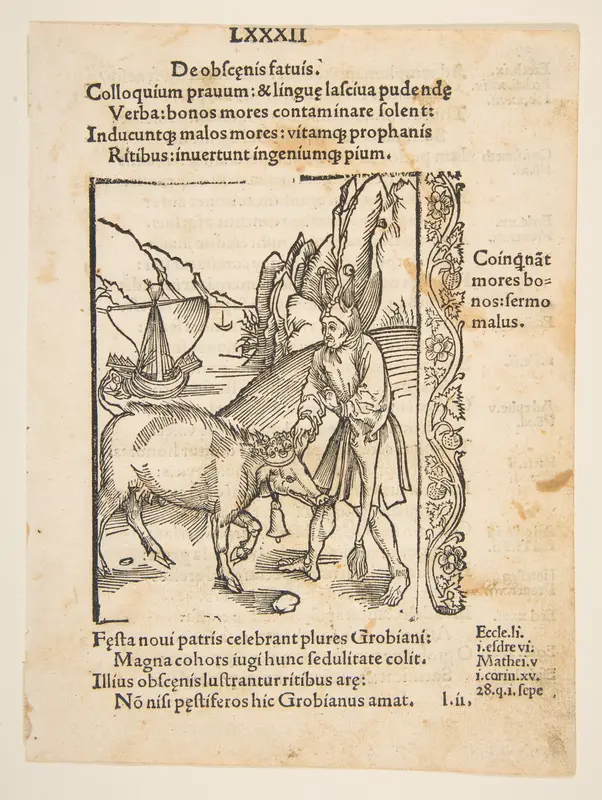 LXXXII
De obscęnis fatuis.
Colloquium prauum: & linguę lasciua pudendę
Verba: bonos mores contaminare solent:
Inducuntqꝫ malos mores: vitamqꝫ prophanis
Ritibus: inuertunt ingeniumqꝫ pium.
Coinq̃nãt
mores bo=
nos: sermo
malus.
Fęsta noui patris celebrant plures Grobiani:
Magna cohors iugi hunc sedulitate colit.
Illius obscęnis lustrantur ritibus arę:
Nõ nisi pęstiferos hic Grobianus amat.
l.ii,
Eccle.li.
i.esdre vi.
Mathei.v
i.corin.xv.
28.q.i.sepe